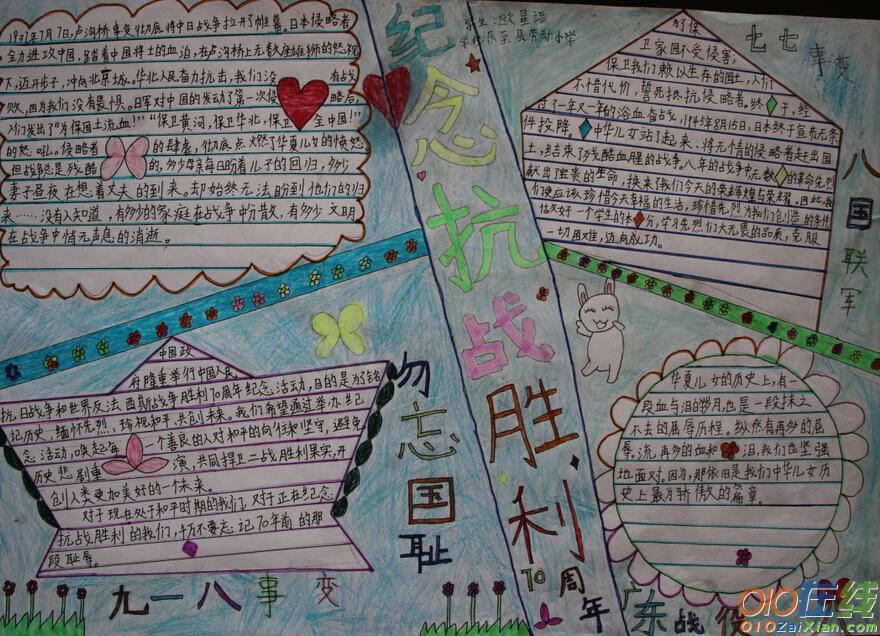 1937年7月7日,卢沟桥事变彻底将中日战争拉开了帷幕。日本侵略者
全力进攻中国,踏着中国将士的血泊,在卢沟桥上无数座雄狮的怒视
下,迈开步子,冲向北京城。华北人民奋力抗击,我们没有战
败,因为我们没有畏惧。日军对中国的发动了第一次侵略后,
人们发出了“为保国土流血!”“保卫黄河,保卫华北,保卫全中国!”
的怒吼。侵略者的肆虐,彻底点燃了华夏儿女的愤怒。
但战争总是残酷的,多少母亲每日盼着儿子的回归,多少
妻子昼夜在想着丈夫的到来。却始终无法盼到他们的归
来……没有人知道,有多少的家庭在战争中分散,有多少文明
在战争中悄无声息的消逝。
学生:欧星语
学校:乐至县劳动小学
纪念抗战胜利
70周年
为了保
卫家园不受侵害;
保卫我们赖以生存的国土,人们
不惜代价,誓死抵抗侵略者。终于,经
过了一年又一年的浴血奋战,1945年8月15日,日本终于宣布无条
件投降。中华儿女站了起来,将无情的侵略者赶出国
土,结束了残酷血腥的战争。八年的战争中无数的革命先烈
献出宝贵的生命,换来了我们今天的荣辉煌与荣耀,因此,我
们更应该珍惜今天幸福的生活,珍惜先烈为我们创造的条件
做好一个学生的本分,学习先烈们大无畏的品质,克服
一切困难,迈向成功。
七七事变
八国联军
中国政
府隆重举行中国人民
抗日战争和世界反法西斯战争胜利70周年纪念活动,目的是为了铭
记历史,缅怀先烈,珍视和平,共创未来。我们希望通过举办纪
念活动,唤起每一个善良的人对和平的向往和坚守,避免
历史悲剧重演,共同捍卫二战胜利果实,开
创人类更加美好的一个未来。
对于现在处于和平时期的我们,对于正在纪念
抗战胜利的我们,千万不要忘记70年前的那
段耻辱。
勿忘国耻
九一八事变
华夏儿女的历史上,有一
段血与泪的岁月,也是一段抹之
不去的屈辱历程,纵然有再多的屈
辱,流再多的血和泪,我们也坚强
地面对。因为,那依旧是我们中华儿女历
史上最为骄傲的篇章。
广东战
010在线
010ZaiXian.com